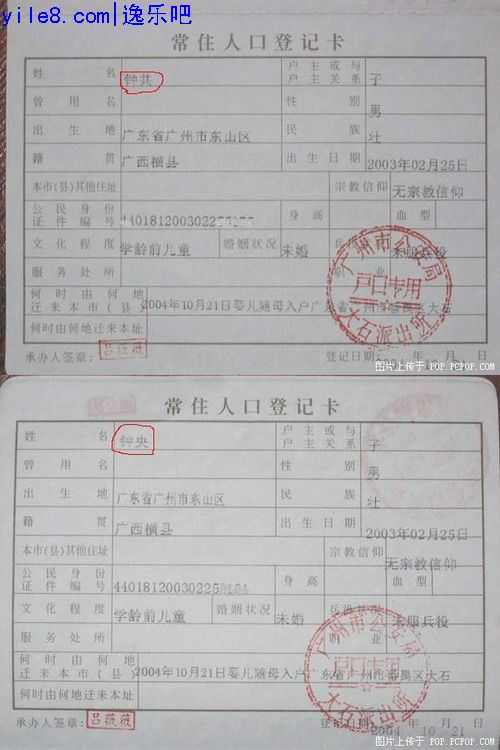 yile8.com|逸乐吧
常住人口登记卡
姓名 钟共 户主或与户主关系 子
曾用名 性别 男
出生地 广东省广州市东山区 民族 壮
籍贯 广西横县 出生日期 2003年02月25日
本市(县)其他住址 宗教信仰 无宗教信仰
公民身份证件编号 身高 血型
文化程度 学龄前儿童 婚姻状况 未婚 未服兵役
服务处所
何时由何地迁来本市(县) 2004年10月21日婴儿随母入户广东省广州市番禺区大石
何时由何地迁来本址
广州市公安局
户口专用
大石派出所
承办人签章: 吕薇薇 登记日期: 年 月 日
图片上传于 POP.PCPOP.COM
常住人口登记卡
姓名 钟央 户主或与户主关系 子
曾用名 性别 男
出生地 广东省广州市东山区 民族 壮
籍贯 广西横县 出生日期 2003年02月25日
本市(县)其他住址 宗教信仰 无宗教信仰
公民身份证件编号 身高 血型
文化程度 学龄前儿童 婚姻状况 未婚 未服兵役
服务处所 职业
何时由何地迁来本市(县) 2004年10月21日婴儿随母入户广东省广州市番禺区大石
何时由何地迁来本址
广州市公安局
户口专用
大石派出所
承办人签章: 吕薇薇 登记日期: 2004 年 10 月 21
图片上传于 POP.PCPOP.COM